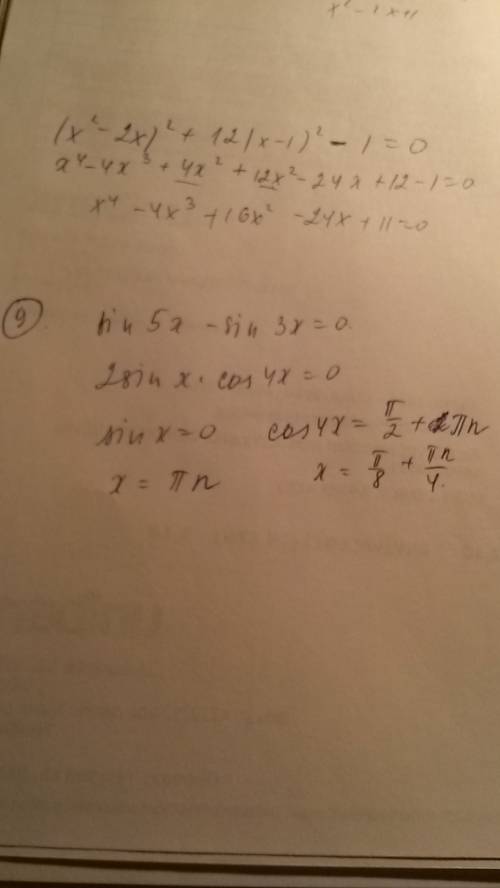 (x² - 2x)² + 12(x-1)² - 1 = 0
x⁴ - 4x³ + 4x² + 12x² - 24x + 12 - 1 = 0
x⁴ - 4x³ + 16x² - 24x + 11 = 0
9 sin 5x - sin 3x = 0.
2sin x · cos 4x = 0
sin x = 0 cos 4x = π/2 + πn
x = πn x = π/8 + πn/4.